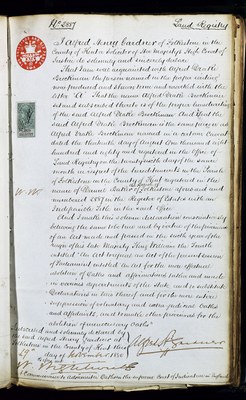 No 2007 Land Registry
I Alfred Henry Gardner of Folkestone in the
County of Kent Solicitor of Her Majesty's High Court of
Justice do solemnly and sincerely declare
That I am well acquainted with Alfred Drake
Brockman the person named in the paper writing
now produced and shewn to me and marked with the
letter A That the name Alfred Drake Brockman
therein is the of the proper handwriting
of the said Alfred Drake Brockman And that the said
Alfred Drake Brockman is the same person as
Alfred Drake Brockman named in a
dated the thirteenth day of August One thousand eight
hundred and eighty and registered in the Office of
Land Registry on the day of the same
month in respect of the hereditaments in the
of Folkestone in the County of Kent registered in the
name of of Folkestone aforesaid and
numbered 2007 in the Register of Estates with an
Indefeasible Title in the said Office
And I make this solemn declaration conscientiously
believing the same to be true and by virtue of the provisions
of an Act made and passed in the year of the
reign of his late Majesty King William the Fourth
intituled "An Act to repeal an Act of the present Session
of Parliament intituled An Act for the more effectual
abolition of Oaths and affirmations taken and made
in various departments of the State and to substitute
Declarations in lieu thereof and for the more entire
suppression of voluntary and extra judicial Oaths
and Affidavits and to make other provisions for the
abolition of unnecessary Oaths"
Declared and solemnly declared by
the said Alfred Henry Gardner at
Folkestone in the County of Kent this
29 day of November 1880
Before me
A Commissioner to administer Oaths in the Supreme Court of Judicature in England